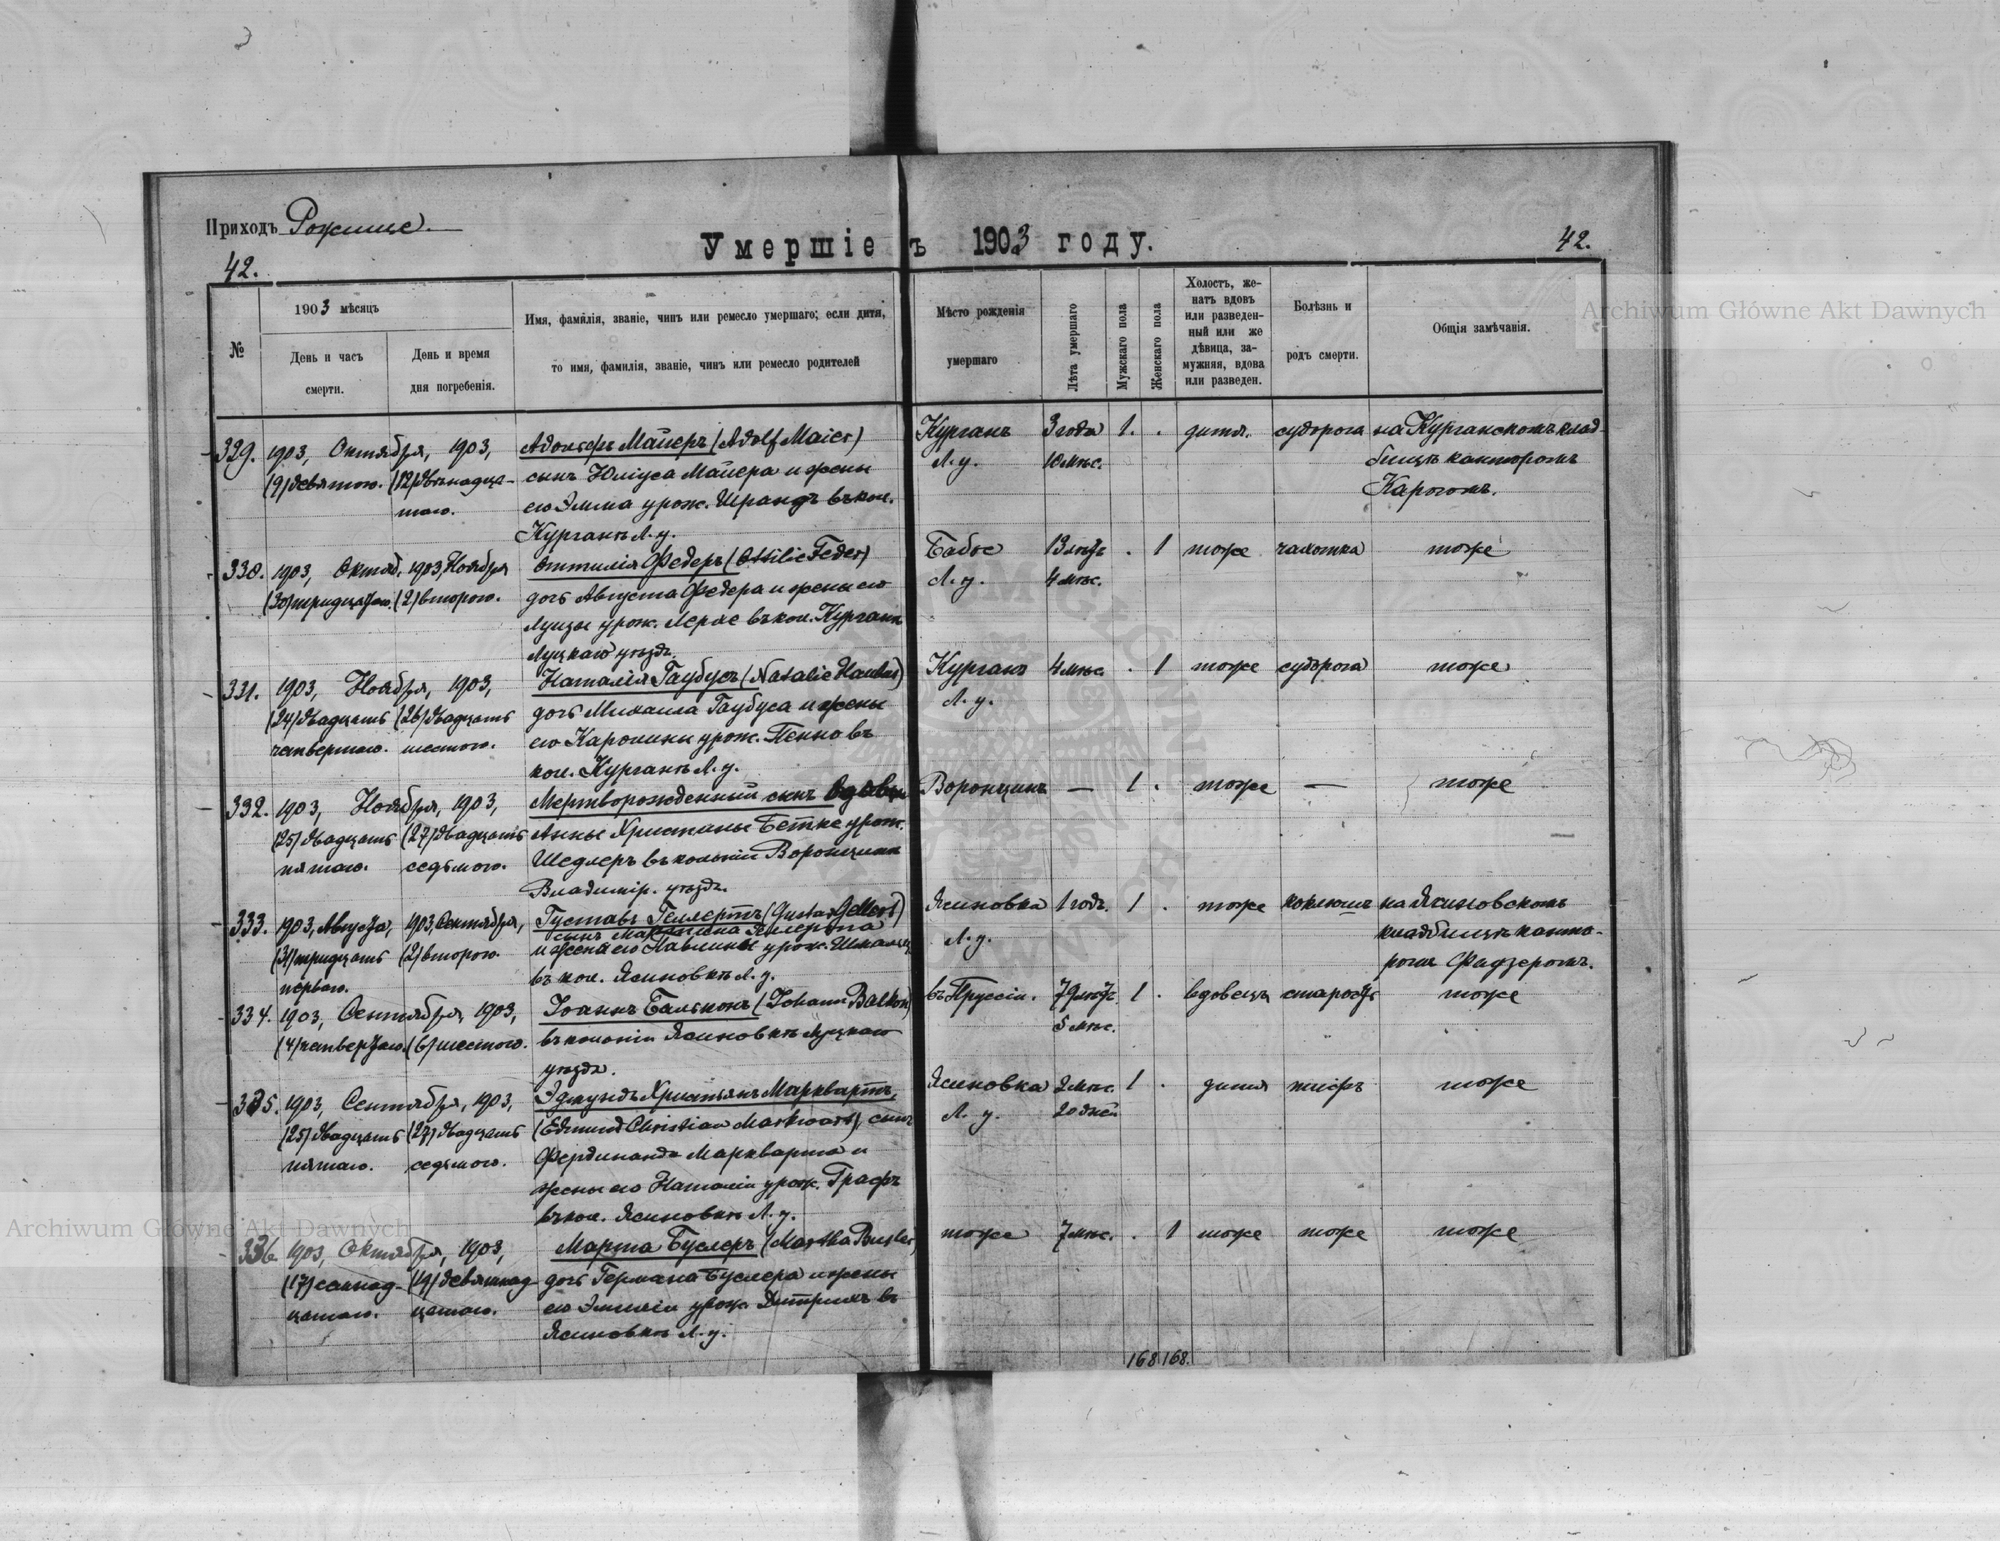 Приходъ Рожище.
Умершіе въ 1903 году.
42.
42.
№
1903 мѣсяцъ
День и часъ смерти.
День и время дня погребенія.
Имя, фамилія, званіе, чинъ или ремесло умершаго; если дитя,
то имя, фамилія, званіе, чинъ или ремесло родителей
Мѣсто рожденія
умершаго
Лѣта умершаго
Мужскаго пола
Женскаго пола
Холостъ, же-
натъ вдовъ
или разведен-
ный или же
дѣвица, за-
мужняя, вдова
или разведен.
Болѣзнь и
родъ смерти.
Общія замѣчанія.
329. 1903, Октября, 1903, Адольфъ Майеръ (Adolf Maier) Курганъ 3 года 1. . дитя. судорога на Курганскомъ клад-
(9) девятаго. (12) двѣнадца- сынъ Юліуса Майера и жены Л. у. 10 мѣс. бищѣ канторомъ
таго. его Эмма урож. Шрандъ въ кол. Карогомъ.
Курганъ Л. у.
330. 1903, Октяб., 1903, Ноября Оттилія Федеръ (Ottilie Feder) Бабое 13 лѣтъ . 1 тоже чахотка тоже
(30) тридцатаго. (2) второго. дочь Августа Федера и жены его Л. у. 4 мѣс.
Луизы урож. Лерке въ кол. Курганъ
Луцкаго уѣзда.
331. 1903, Ноября, 1903, Наталія Гаубусъ (Natalie Haubus) Курганъ 4 мѣс. . 1 тоже судорога тоже
(24) двадцать (26) двадцать дочь Михаила Гаубуса и жены Л. у.
четвертаго. шестого. его Каролины урож. Пенно въ
кол. Курганъ Л. у.
332. 1903, Ноября, 1903, Мертворожденный сынъ вдовы Воронцинъ — 1 . тоже — тоже
(25) двадцать (27) двадцать Анны Христины Бетке урож.
пятаго. седьмого. Шедлеръ въ колоніи Воронцинъ
Владимір. уѣзда.
333. 1903, Августа, 1903, Сентября, Густавъ Геллертъ (Gustav Gellert) Ясиновка 1 годъ. 1 . тоже коклюшъ на Ясиновскомъ
сынъ Мартина Геллерта
(31) тридцать (2) второго. и жены его Павлины урож. Л. у. кладбищѣ канто-
перваго. въ кол. Ясиновкѣ Л. у. ромъ Фадзеромъ.
334. 1903, Сентября, 1903, Іоаннъ Балконъ (Johann Balkon) въ Пруссіи. 79 лѣтъ 1 . вдовецъ старость тоже
(4) четвертаго. (6) шестого. въ колоніи Ясиновкѣ Луцкаго 5 мѣс.
уѣзда.
335. 1903, Сентября, 1903, Эдмундъ Христьянъ Марквартъ, Ясиновка 2 мѣс. 1 . дитя тифъ тоже
(25) двадцать (27) двадцать (Edmund Christian Markwart), сынъ Л. у. 20 дней
пятаго. седьмого. Фердинанда Маркварта и
жены его Наталіи урож. Графъ
въ кол. Ясиновкѣ Л. у.
336. 1903, Октября, 1903, Марта Буслеръ (Martha Busler) тоже 7 мѣс. . 1 тоже тоже тоже
(17) семнад- (19) девятнад- дочь Германа Буслера и жены
цатаго. цатаго. его Эмиліи урож. Дитрихъ въ
Ясиновкѣ Л. у.
168 168.
Archiwum Główne Akt Dawnych
Archiwum Główne Akt Dawnych